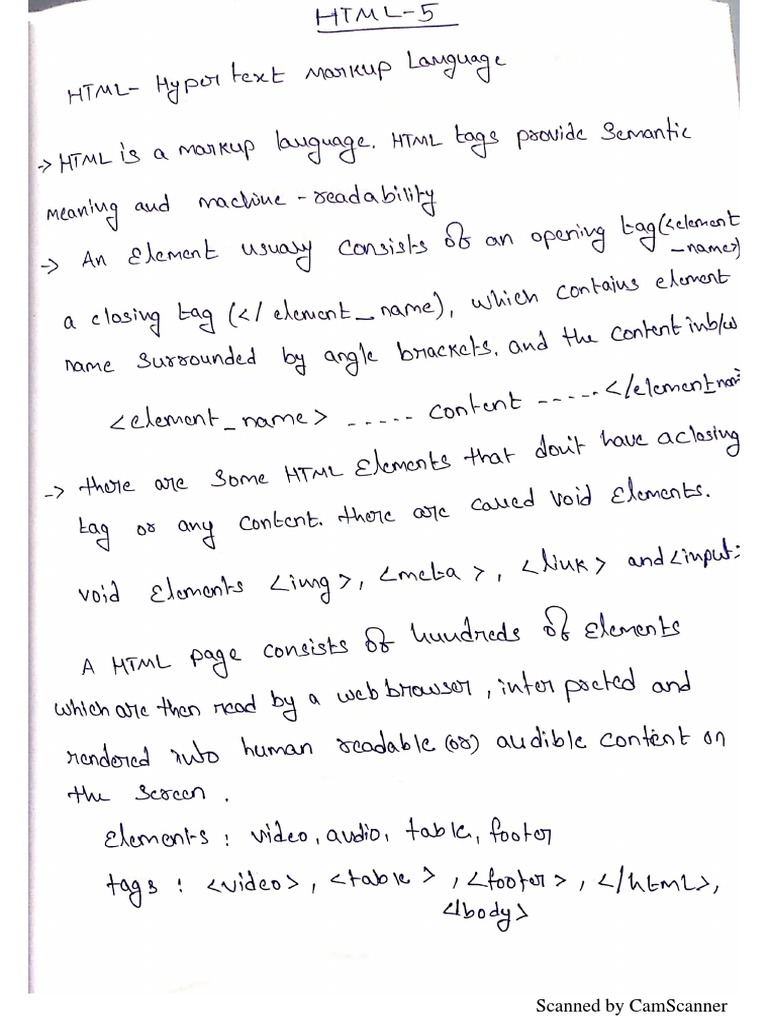 HTML-5
HTML- Hyper text Markup Language
-> HTML is a markup language. HTML tags provide Semantic
meaning and machine - readability
-> An Element usualy consists of an opening tag(<element
_name>)
a closing tag (</ element_name), which contains element
name surrounded by angle brackets. and the content inb/w
<element_name> ----- content -----</element_nam
-> there are some HTML Elements that don't have a closing
tag or any content. there are called void Elements.
void Elements <img>, <meta>, <link> and <input>
A HTML page consists of hundreds of Elements
which are then read by a web browser, inter preted and
rendered into human readable (or) audible content on
the screen.
Elements : video, audio, table, footer
tags : <video>, <table>, <footer>, </html>,
</body>
Scanned by CamScanner